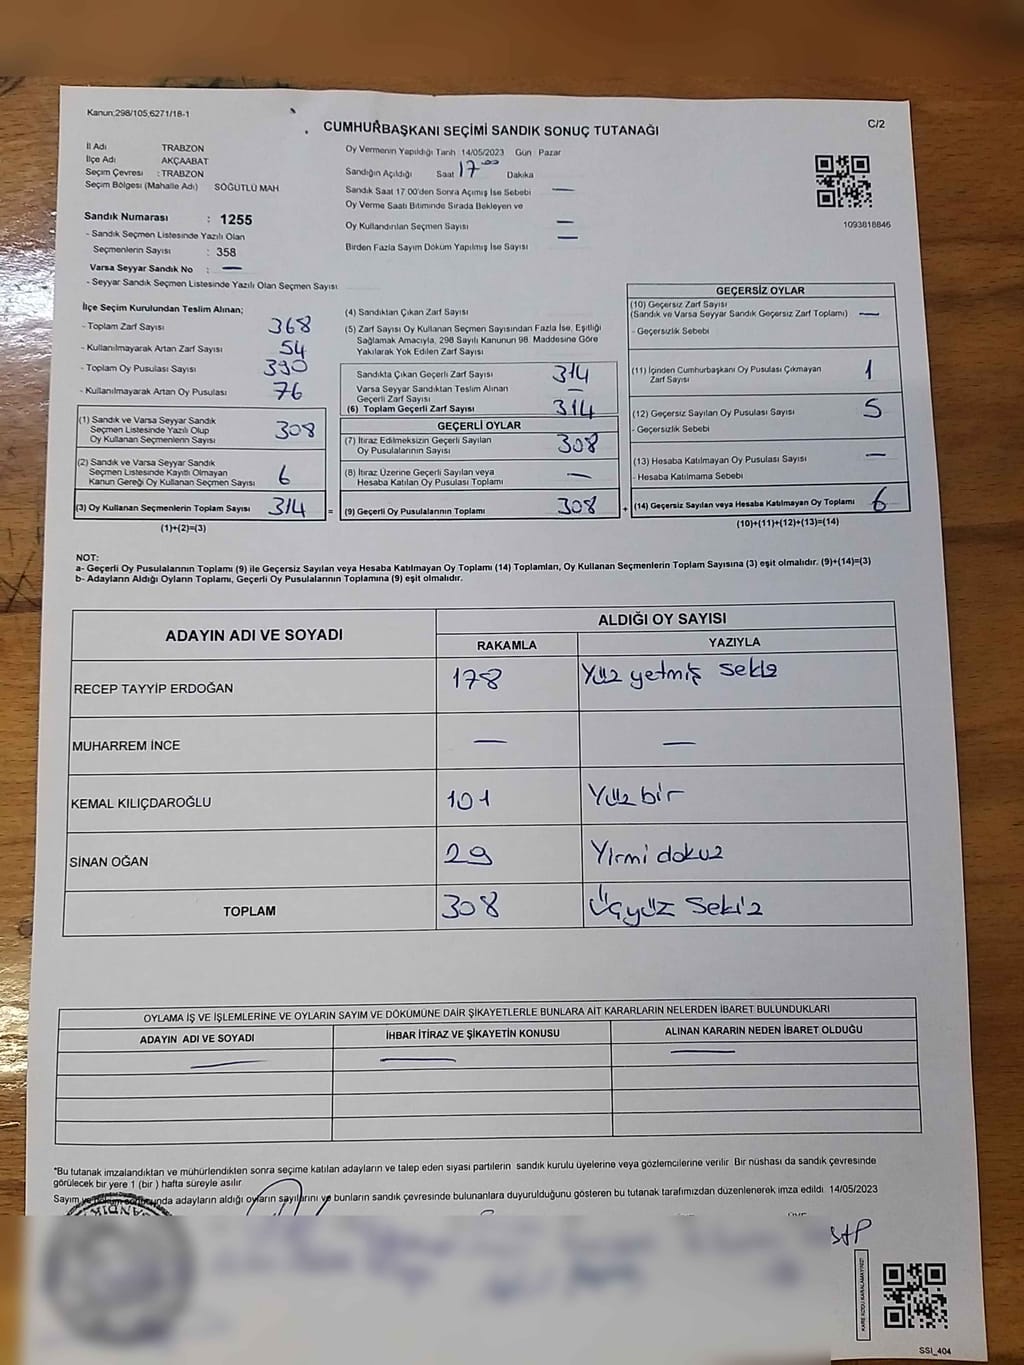 Kanun;298/105,6271/18-1
CUMHURBAŞKANI SEÇİMİ SANDIK SONUÇ TUTANAĞI
C/2
İl Adı TRABZON
İlçe Adı AKÇAABAT
Seçim Çevresi : TRABZON
Seçim Bölgesi (Mahalle Adı) SÖĞÜTLÜ MAH
Sandık Numarası : 1255
- Sandık Seçmen Listesinde Yazılı Olan
Seçmenlerin Sayısı : 358
Varsa Seyyar Sandık No : —
- Seyyar Sandık Seçmen Listesinde Yazılı Olan Seçmen Sayısı
Oy Vermenin Yapıldığı Tarih 14/05/2023 Gün Pazar
Sandığın Açıldığı Saat 17 00 Dakika
Sandık Saat 17 00'den Sonra Açımış İse Sebebi —
Oy Verme Saati Bitiminde Sırada Bekleyen ve
Oy Kullandırılan Seçmen Sayısı —
Birden Fazla Sayım Döküm Yapılmış İse Sayısı —
1093818846
İlçe Seçim Kurulundan Teslim Alınan;
- Toplam Zarf Sayısı 368
- Kullanılmayarak Artan Zarf Sayısı 54
- Toplam Oy Pusulası Sayısı 390
- Kullanılmayarak Artan Oy Pusulası 76
(1) Sandık ve Varsa Seyyar Sandık
Seçmen Listesinde Yazılı Olup
Oy Kullanan Seçmenlerin Sayısı 308
(2) Sandık ve Varsa Seyyar Sandık
Seçmen Listesinde Kayıtlı Olmayan
Kanun Gereği Oy Kullanan Seçmen Sayısı 6
(3) Oy Kullanan Seçmenlerin Toplam Sayısı 314 =
(1)+(2)=(3)
(4) Sandıktan Çıkan Zarf Sayısı
(5) Zarf Sayısı Oy Kullanan Seçmen Sayısından Fazla İse, Eşitliği
Sağlamak Amacıyla, 298 Sayılı Kanunun 98. Maddesine Göre
Yakılarak Yok Edilen Zarf Sayısı
Sandıkta Çıkan Geçerli Zarf Sayısı 314
Varsa Seyyar Sandıktan Teslim Alınan —
Geçerli Zarf Sayısı
(6) Toplam Geçerli Zarf Sayısı 314
GEÇERLİ OYLAR
(7) İtiraz Edilmeksizin Geçerli Sayılan
Oy Pusulalarının Sayısı 308
(8) İtiraz Üzerine Geçerli Sayılan veya
Hesaba Katılan Oy Pusulası Toplamı —
(9) Geçerli Oy Pusulalarının Toplamı 308 +
GEÇERSİZ OYLAR
(10) Geçersiz Zarf Sayısı
(Sandık ve Varsa Seyyar Sandık Geçersiz Zarf Toplamı) —
- Geçersizlik Sebebi
(11) İçinden Cumhurbaşkanı Oy Pusulası Çıkmayan
Zarf Sayısı 1
(12) Geçersiz Sayılan Oy Pusulası Sayısı 5
- Geçersizlik Sebebi
(13) Hesaba Katılmayan Oy Pusulası Sayısı —
- Hesaba Katılmama Sebebi
(14) Geçersiz Sayılan veya Hesaba Katılmayan Oy Toplamı 6
(10)+(11)+(12)+(13)=(14)
NOT:
a- Geçerli Oy Pusulalarının Toplamı (9) ile Geçersiz Sayılan veya Hesaba Katılmayan Oy Toplamı (14) Toplamları, Oy Kullanan Seçmenlerin Toplam Sayısına (3) eşit olmalıdır. (9)+(14)=(3)
b- Adayların Aldığı Oyların Toplamı, Geçerli Oy Pusulalarının Toplamına (9) eşit olmalıdır.
ADAYIN ADI VE SOYADI ALDIĞI OY SAYISI
RAKAMLA YAZIYLA
RECEP TAYYİP ERDOĞAN 178 Yüz yetmiş sekiz
MUHARREM İNCE — —
KEMAL KILIÇDAROĞLU 101 Yüz bir
SİNAN OĞAN 29 Yirmi dokuz
TOPLAM 308 Üçyüz Sekiz
OYLAMA İŞ VE İŞLEMLERİNE VE OYLARIN SAYIM VE DÖKÜMÜNE DAİR ŞİKAYETLERLE BUNLARA AİT KARARLARIN NELERDEN İBARET BULUNDUKLARI
ADAYIN ADI VE SOYADI İHBAR İTİRAZ VE ŞİKAYETİN KONUSU ALINAN KARARIN NEDEN İBARET OLDUĞU
— — —
*Bu tutanak imzalandıktan ve mühürlendikten sonra seçime katılan adayların ve talep eden siyasi partilerin sandık kurulu üyelerine veya gözlemcilerine verilir Bir nüshası da sandık çevresinde
görülecek bir yere 1 (bir ) hafta süreyle asılır
Sayım ve döküm sonucunda adayların aldığı oyların sayılarını ve bunların sandık çevresinde bulunanlara duyurulduğunu gösteren bu tutanak tarafımızdan düzenlenerek imza edildi 14/05/2023
SSI_404